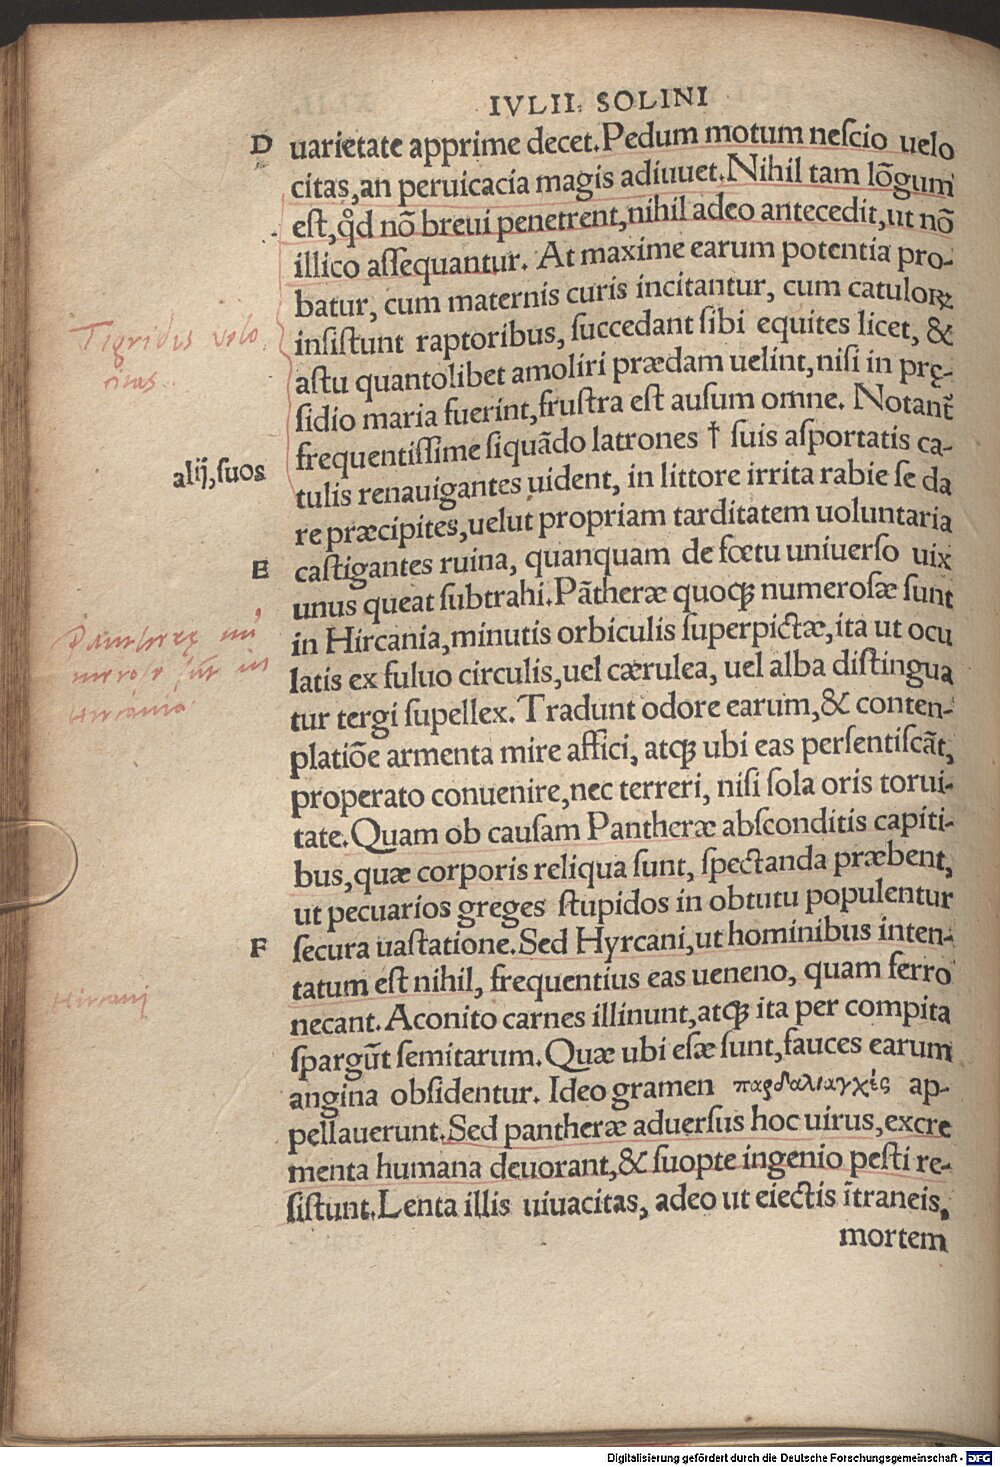 IVLII. SOLINI
D uarietate apprime decet. Pedum motum neſcio uelo
citas, an peruicacia magis adiuuet. Nihil tam lõgum
eſt, qd̉ nõ breui penetrent, nihil adeo antecedit, ut nõ
illico aſſequantur. At maxime earum potentia pro-
batur, cum maternis curis incitantur, cum catuloꝝ
inſiſtunt raptoribus, ſuccedant ſibi equites licet, &
Tigridis velo
citas.
aſtu quantolibet amoliri prædam uelint, niſi in prę-
ſidio maria fuerint, fruſtra eſt auſum omne. Notant᷑
frequentiſſime ſiquãdo latrones † ſuis aſportatis ca-
alij, ſuos
tulis renauigantes uident, in littore irrita rabie ſe da
re præcipites, uelut propriam tarditatem uoluntaria
E caſtigantes ruina, quanquam de fœtu uniuerſo uix
unus queat ſubtrahi. Pãtheræ quoqꝫ numeroſæ ſunt
in Hircania, minutis orbiculis ſuperpictæ, ita ut ocu
Pantherę nu
meroſe ſũt in
Hircania
latis ex fuluo circulis, uel cærulea, uel alba diſtingua
tur tergi ſupellex. Tradunt odore earum, & conten-
platiõe armenta mire affici, atqꝫ ubi eas perſentiſcãt,
properato conuenire, nec terreri, niſi ſola oris torui-
tate. Quam ob cauſam Pantheræ abſconditis capiti-
bus, quæ corporis reliqua ſunt, ſpectanda præbent,
ut pecuarios greges ſtupidos in obtutu populentur
F ſecura uaſtatione. Sed Hyrcani, ut hominibus inten-
tatum eſt nihil, frequentius eas ueneno, quam ferro
Hircani
necant. Aconito carnes illinunt, atqꝫ ita per compita
ſpargũt ſemitarum. Quæ ubi eſæ ſunt, fauces earum
angina obſidentur. Ideo gramen παρδαλιαγχὲς ap-
pellauerunt. Sed pantheræ aduerſus hoc uirus, excre
menta humana deuorant, & ſuopte ingenio peſti re-
ſiſtunt. Lenta illis uiuacitas, adeo ut eiectis ĩtraneis,
mortem
Digitalisierung gefördert durch die Deutsche Forschungsgemeinschaft - DFG